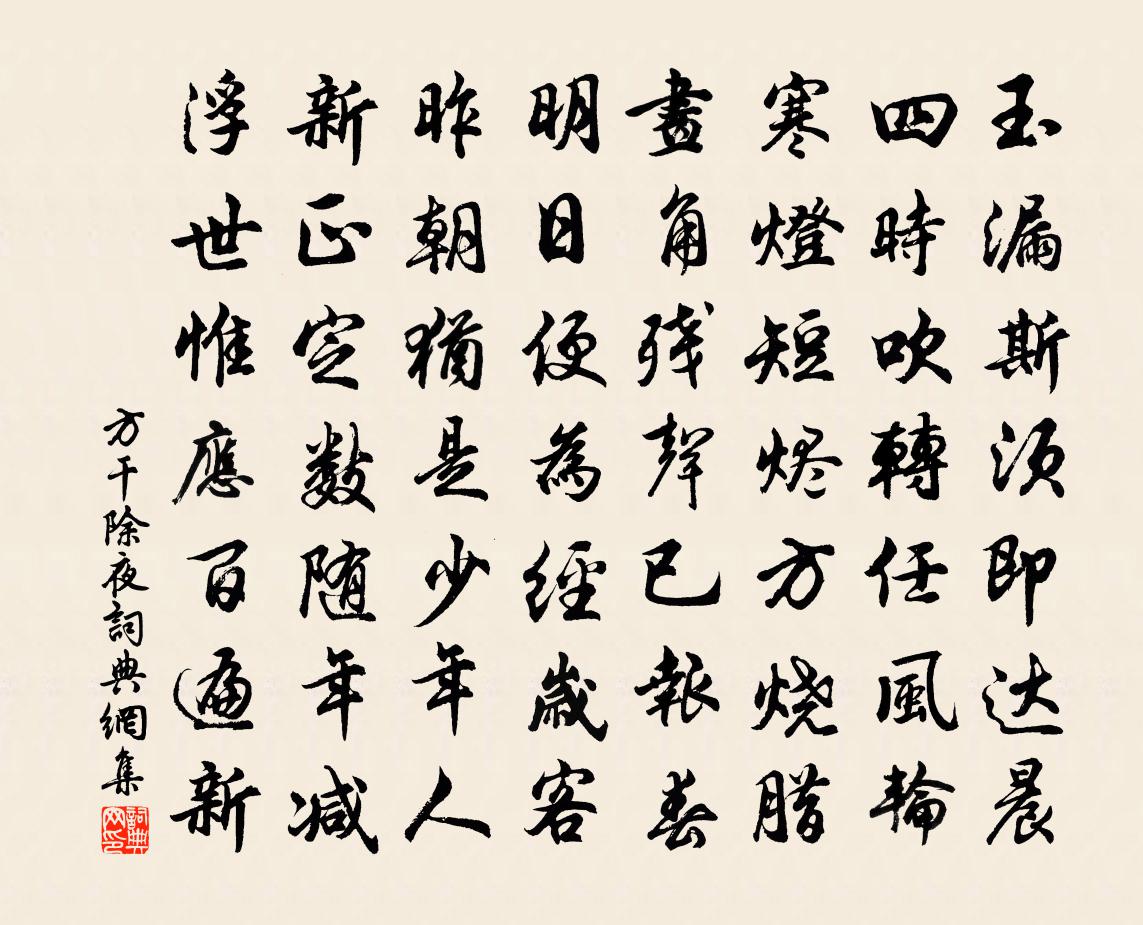 玉漏斯須即达晨
四時吹轉任風輪
寒燈短烬方烧腊
畫角残聲已報春
明日便為經歲客
昨朝猶是少年人
新正定數随年减
浮世惟應百遍新
方干除夜詞典網集
詞典网印